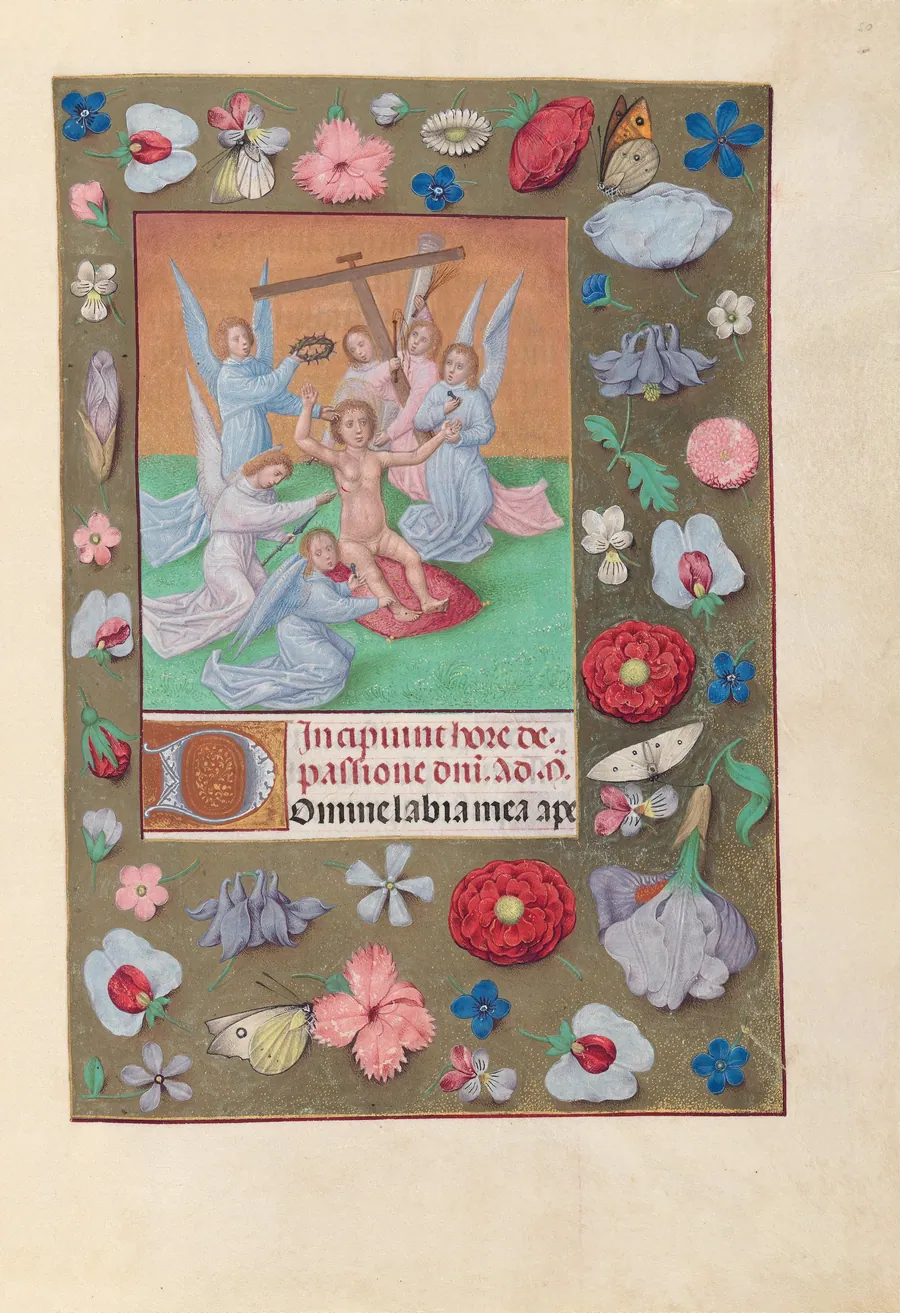 50
Incipiunt hore de
passione dnĩ. Ad. M̃.
Domine labia mea ape